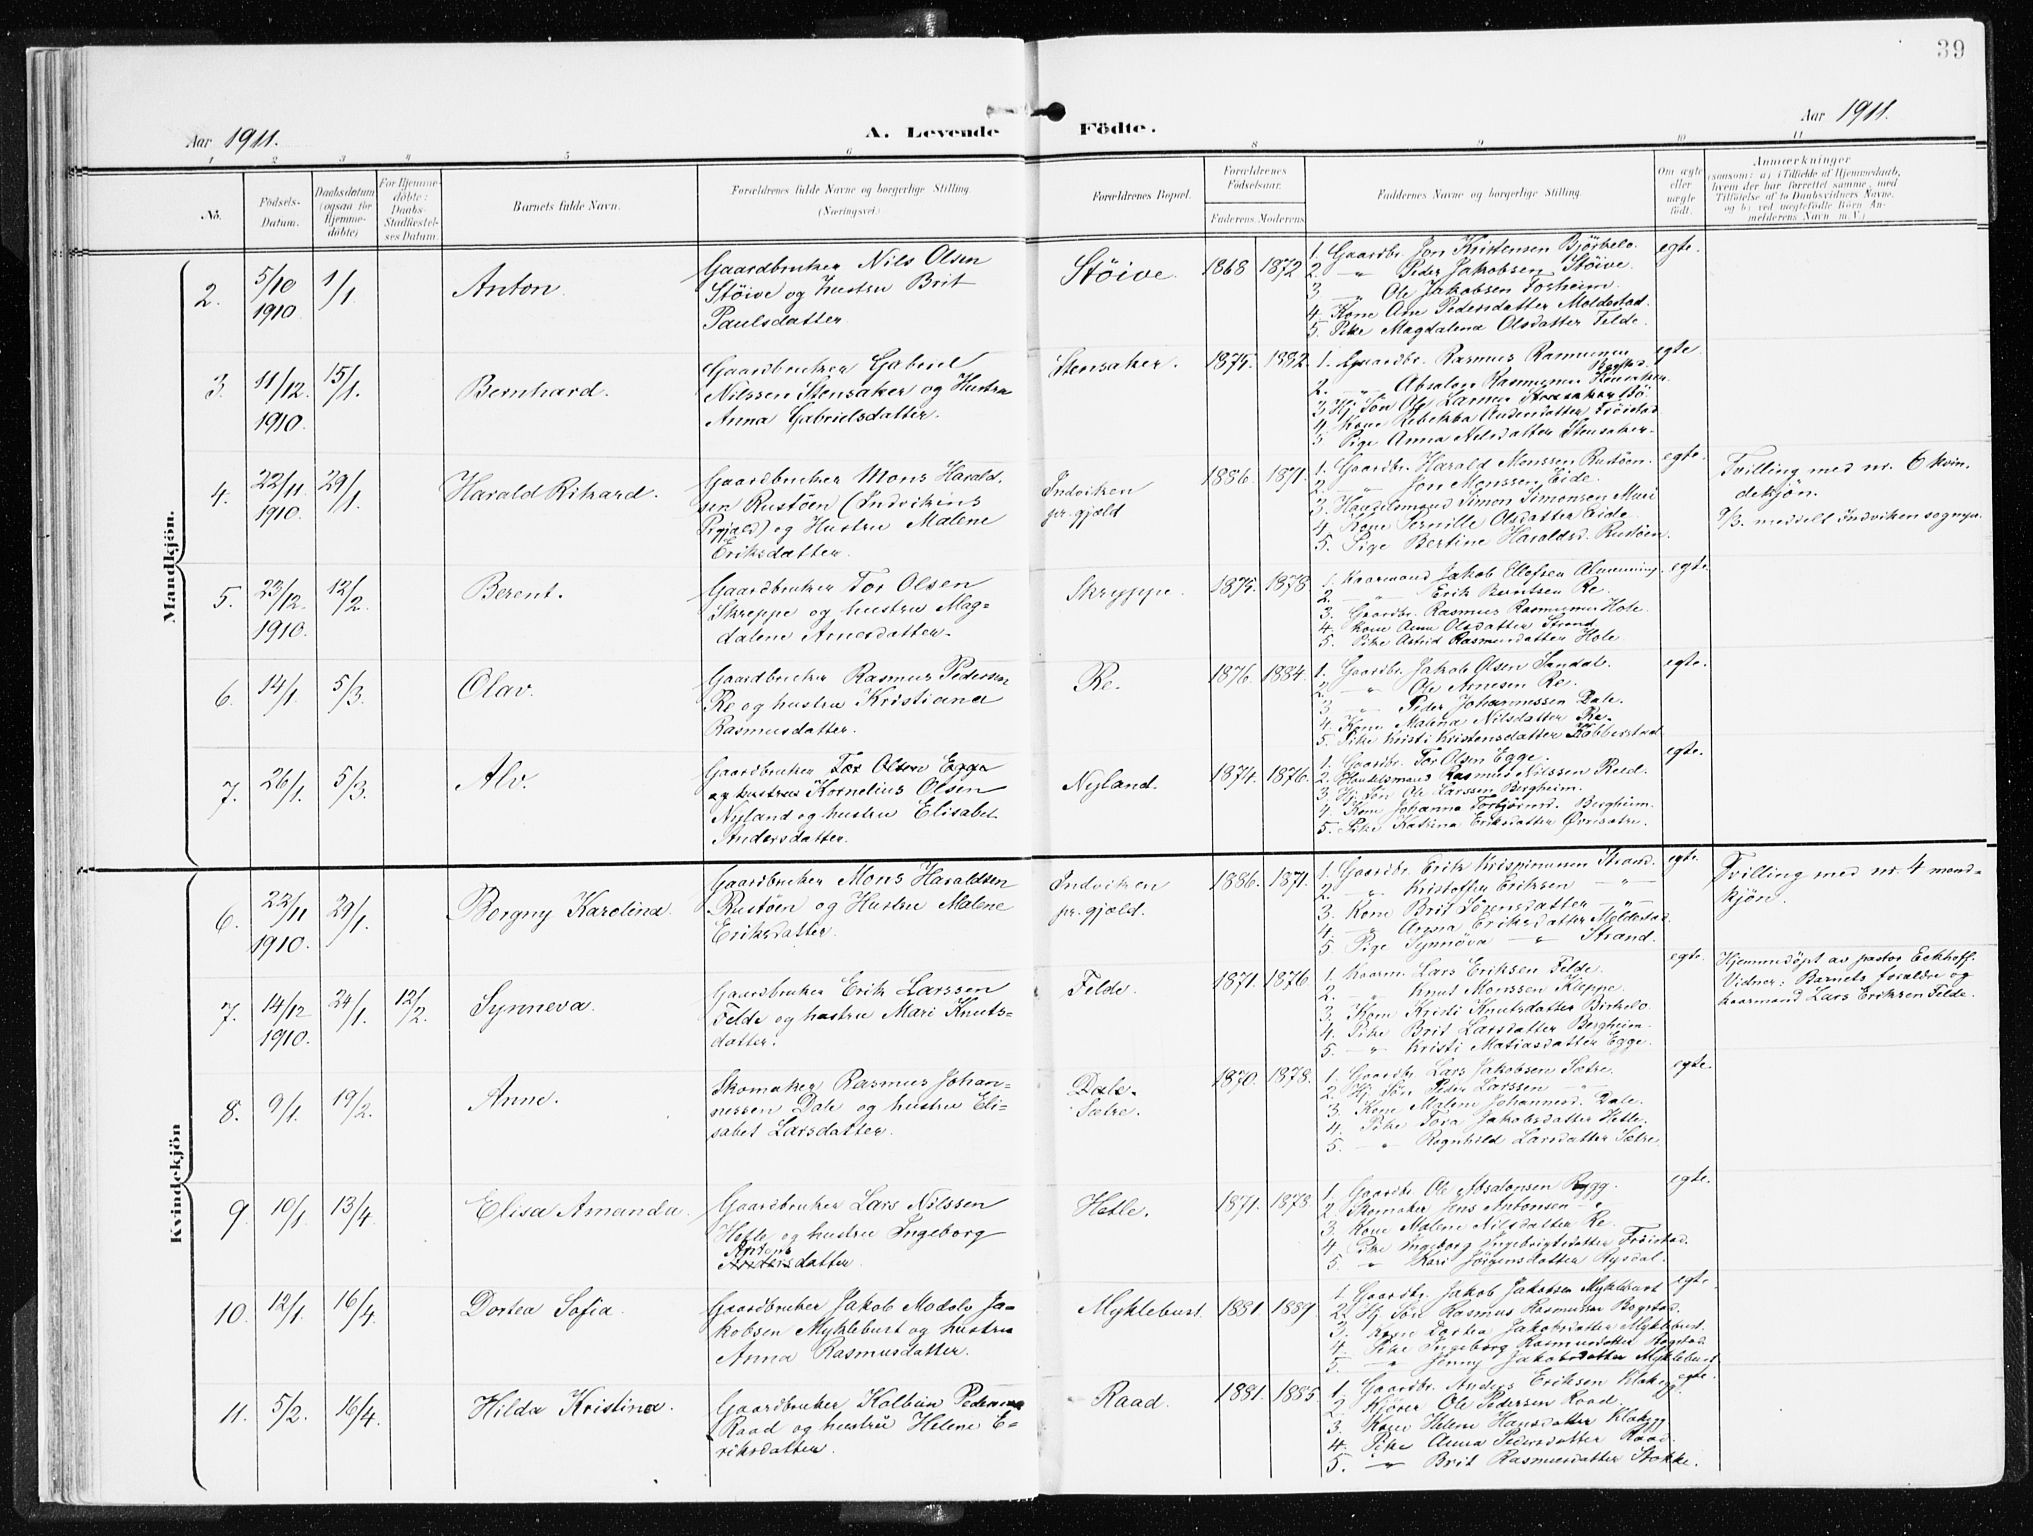 39
Aar 1911.
A. Levende
Födte.
Aar 1911.
1 2 3 4 5 6 8 9 10 11
No.
Födsels-
Datum.
Daabsdatum
(ogsaa for
Hjemme-
döbte)
For Hjemme-
döbte:
Daabs-
Stadfæstel-
ses Datum.
Barnets fulde Navn.
Forældrenes fulde Navne og borgerlige Stilling.
(Næringsvei)
Forældrenes Bopæl.
Forældrenes
Födselsaar.
Faderens. Moderens.
Faddernes Navne og borgerlige Stilling.
Om ægte
eller
uægte
födt.
Anmærkninger
(saasom: a) i Tilfælde af Hjemmedaab,
hvem der har forrettet samme, med
Tilföielse af to Daabsvidners Navne,
og b) ved uægtefödte Börn An-
melderens Navn m. V.)
Mandkjön.
2. 5/10 1910 1/1 Anton
Gaardbruker Nils Olsen
Stöive og hustru Brit
Paulsdatter
Stöive. 1868 1872
1. Gaardbr. Jon Kristensen Bjørbelo.
2. " Peder Jakobsen Støive.
3. " Ole Jakobsen Forheim.
4. Kone Ane Pedersdatter Moldestad.
5. Pike Magdalena Olsdatter Felde.
egte.
3. 11/12 1910. 15/1. Bernhard.
Gaardbruker Gabriel
Nilssen Stensaker og Hustru
Anna Gabrielsdatter.
Stensaker. 1875. 1882.
1. Gaardbr. Rasmus Rasmussen
2. " Absalon Rasmussen
3. Hj. Søn Ole Larsen
4. Kone Rebekka Andersdatter Frøistad
5. Pige Anna Nilsdatter Stensaker.
egte.
4. 22/11 1910. 29/1. Harald Rikard.
Gaardbruker Mons Harald-
sen Rustöen (Indvikens
Prgjæld) og Hustru Malene
Eriksdatter.
Indviken
pr. gjæld
1886. 1871.
1. Gaardbr. Harald Monssen Rustöen.
2. " Jon Monssen Eide.
3. Handelsmand Simon Simonsen Muri
4. Kone Pernille Olsdatter Eide.
5. Pige Bertine Haraldsd. Rustöen.
egte.
Tvilling med nr. 6 kvin-
dekjøn.
9/3. meddelt Indviken sognepr.
5. 23/12. 1910. 12/2. Berent.
Gaardbruker Tor Olsen
Skreppe og hustru Mag-
dalene Arnesdatter.
Skryppe. 1875. 1878
1. Kaarmand Jakob Ellefsen Almenning.
2. " Erik Berntsen Re.
3. Gaardbr. Rasmus Rasmussen Hole.
4. Kone Anna Olsdatter Strand
5. Pike Astrid Rasmusdatter Hole
egte.
6. 14/1. 5/3. Olav.
Gaardbruker Rasmus Pedersen
Re og hustru Kristiana
Rasmusdatter.
Re. 1876. 1884.
1. Gaardbr. Jakob Olsen Sandal.
2. " Ole Arnesen Re.
3. " Peder Johannessen Dale.
4. Kone Malena Nilsdatter Re.
5. Pike Kristi Kristensdatter Kobberstad
egte.
7. 26/1. 5/3. Alv.
Gaardbruker Tor Olsen Egge
og hustru Kornelius Olsen
Nyland og hustru Elisabet
Andersdatter.
Nyland. 1874. 1876.
1. Gaardbr. Tor Olsen Egge.
2. Handelsmand Rasmus Nilssen Reed.
3. Hj. Søn Ole Larssen Bergheim.
4. Kone Johanna Torbjörnsd. Bergheim.
5. Pike Katrina Eriksdatter Øvresætre.
egte.
Kvindekjön
6. 22/11 1910. 29/1. Borgny Karolina.
Gaardbruker Mons Haraldsen
Rustöen og Hustru Malene
Eriksdatter.
Indviken
pr. gjæld.
1886. 1871.
1. Gaardbr. Erik Krispinussen Strand.
2. " Kristoffer Eriksen — " —
3. Kone Brit Sörensdatter — " —
4. " Anna Eriksdatter Moldestad
5. Pige Synnöva — " — Strand.
egte.
Tvilling med nr. 4 mand-
kjön.
7. 14/12 1910. 24/1. 12/2. Synneva.
Gaardbruker Erik Larssen
Felde og hustru Mari Knuts-
datter.
Felde. 1871. 1876.
1. Kaarm. Lars Eriksen Felde.
2. " Knut Monssen Kleppe.
3. Kone Kristi Knutsdatter Birkelo.
4. Pike Brit Larsdatter Bergheim.
5. — " — Kristi Matiasdatter Egge.
egte.
Hjemmedöpt av pastor Eckhoff.
Vidner: Barnets forældre og
kaarmand Lars Eriksen Felde.
8. 9/1. 19/2. Anne.
Skomaker Rasmus Johan-
nessen Dale og hustru Eli-
sabet Larsdatter.
Dale.
Sætre.
1870. 1878.
1. Gaardbr. Lars Jakobsen Sætre.
2. Hj. Søn Peder Larssen — " —
3. Kone Malene Johannesd. Dale.
4. Pike Tora Jakobsdatter Hetle.
5. — " — Ragnhild Larsdatter Sætre.
egte.
9. 10/1. 13/4. Elisa Amanda.
Gaardbruker Lars Nilssen
Hetle og hustru Ingeborg
Antons
datter.
Hetle. 1871. 1878.
1. Gaardbr. Ole Absalonsen Rygg.
2. Skomaker Jens Antonsen — " —
3. Kone Malene Nilsdatter Re.
4. Pike Ingeborg Ingebrigtsdatter Frøistad.
5. " Kari Jörgensdatter Rysdal.
egte.
10. 12/1. 16/4. Dortea Sofia.
Gaardbruker Jakob Modolv Ja-
kobsen Myklebust og hustru
Anna Rasmusdatter.
Myklebust. 1881. 1889.
1. Gaardbr. Jakob Jakobsen Myklebust
2. Hj. Søn Rasmus Rasmussen Bogstad.
3. Kone Dortea Jakobsdatter Myklebust.
4. Pike Ingeborg Rasmusdatter Bogstad
5. — " — Jenny Jakobsdatter Myklebust
egte.
11. 5/2. 16/4. Hilda Kristina.
Gaardbruker Kolbein Pedersen
Raad og hustru Helene E-
riksdatter.
Raad. 1881. 1885.
1. Gaardbr. Anders Eriksen Klakegg.
2. Kjører Ole Pedersen Raad.
3. Kone Helene Hansdatter Klakegg
4. Pike Anna Pedersdatter Raad.
5. — " — Brit Rasmusdatter Stokke.
egte.